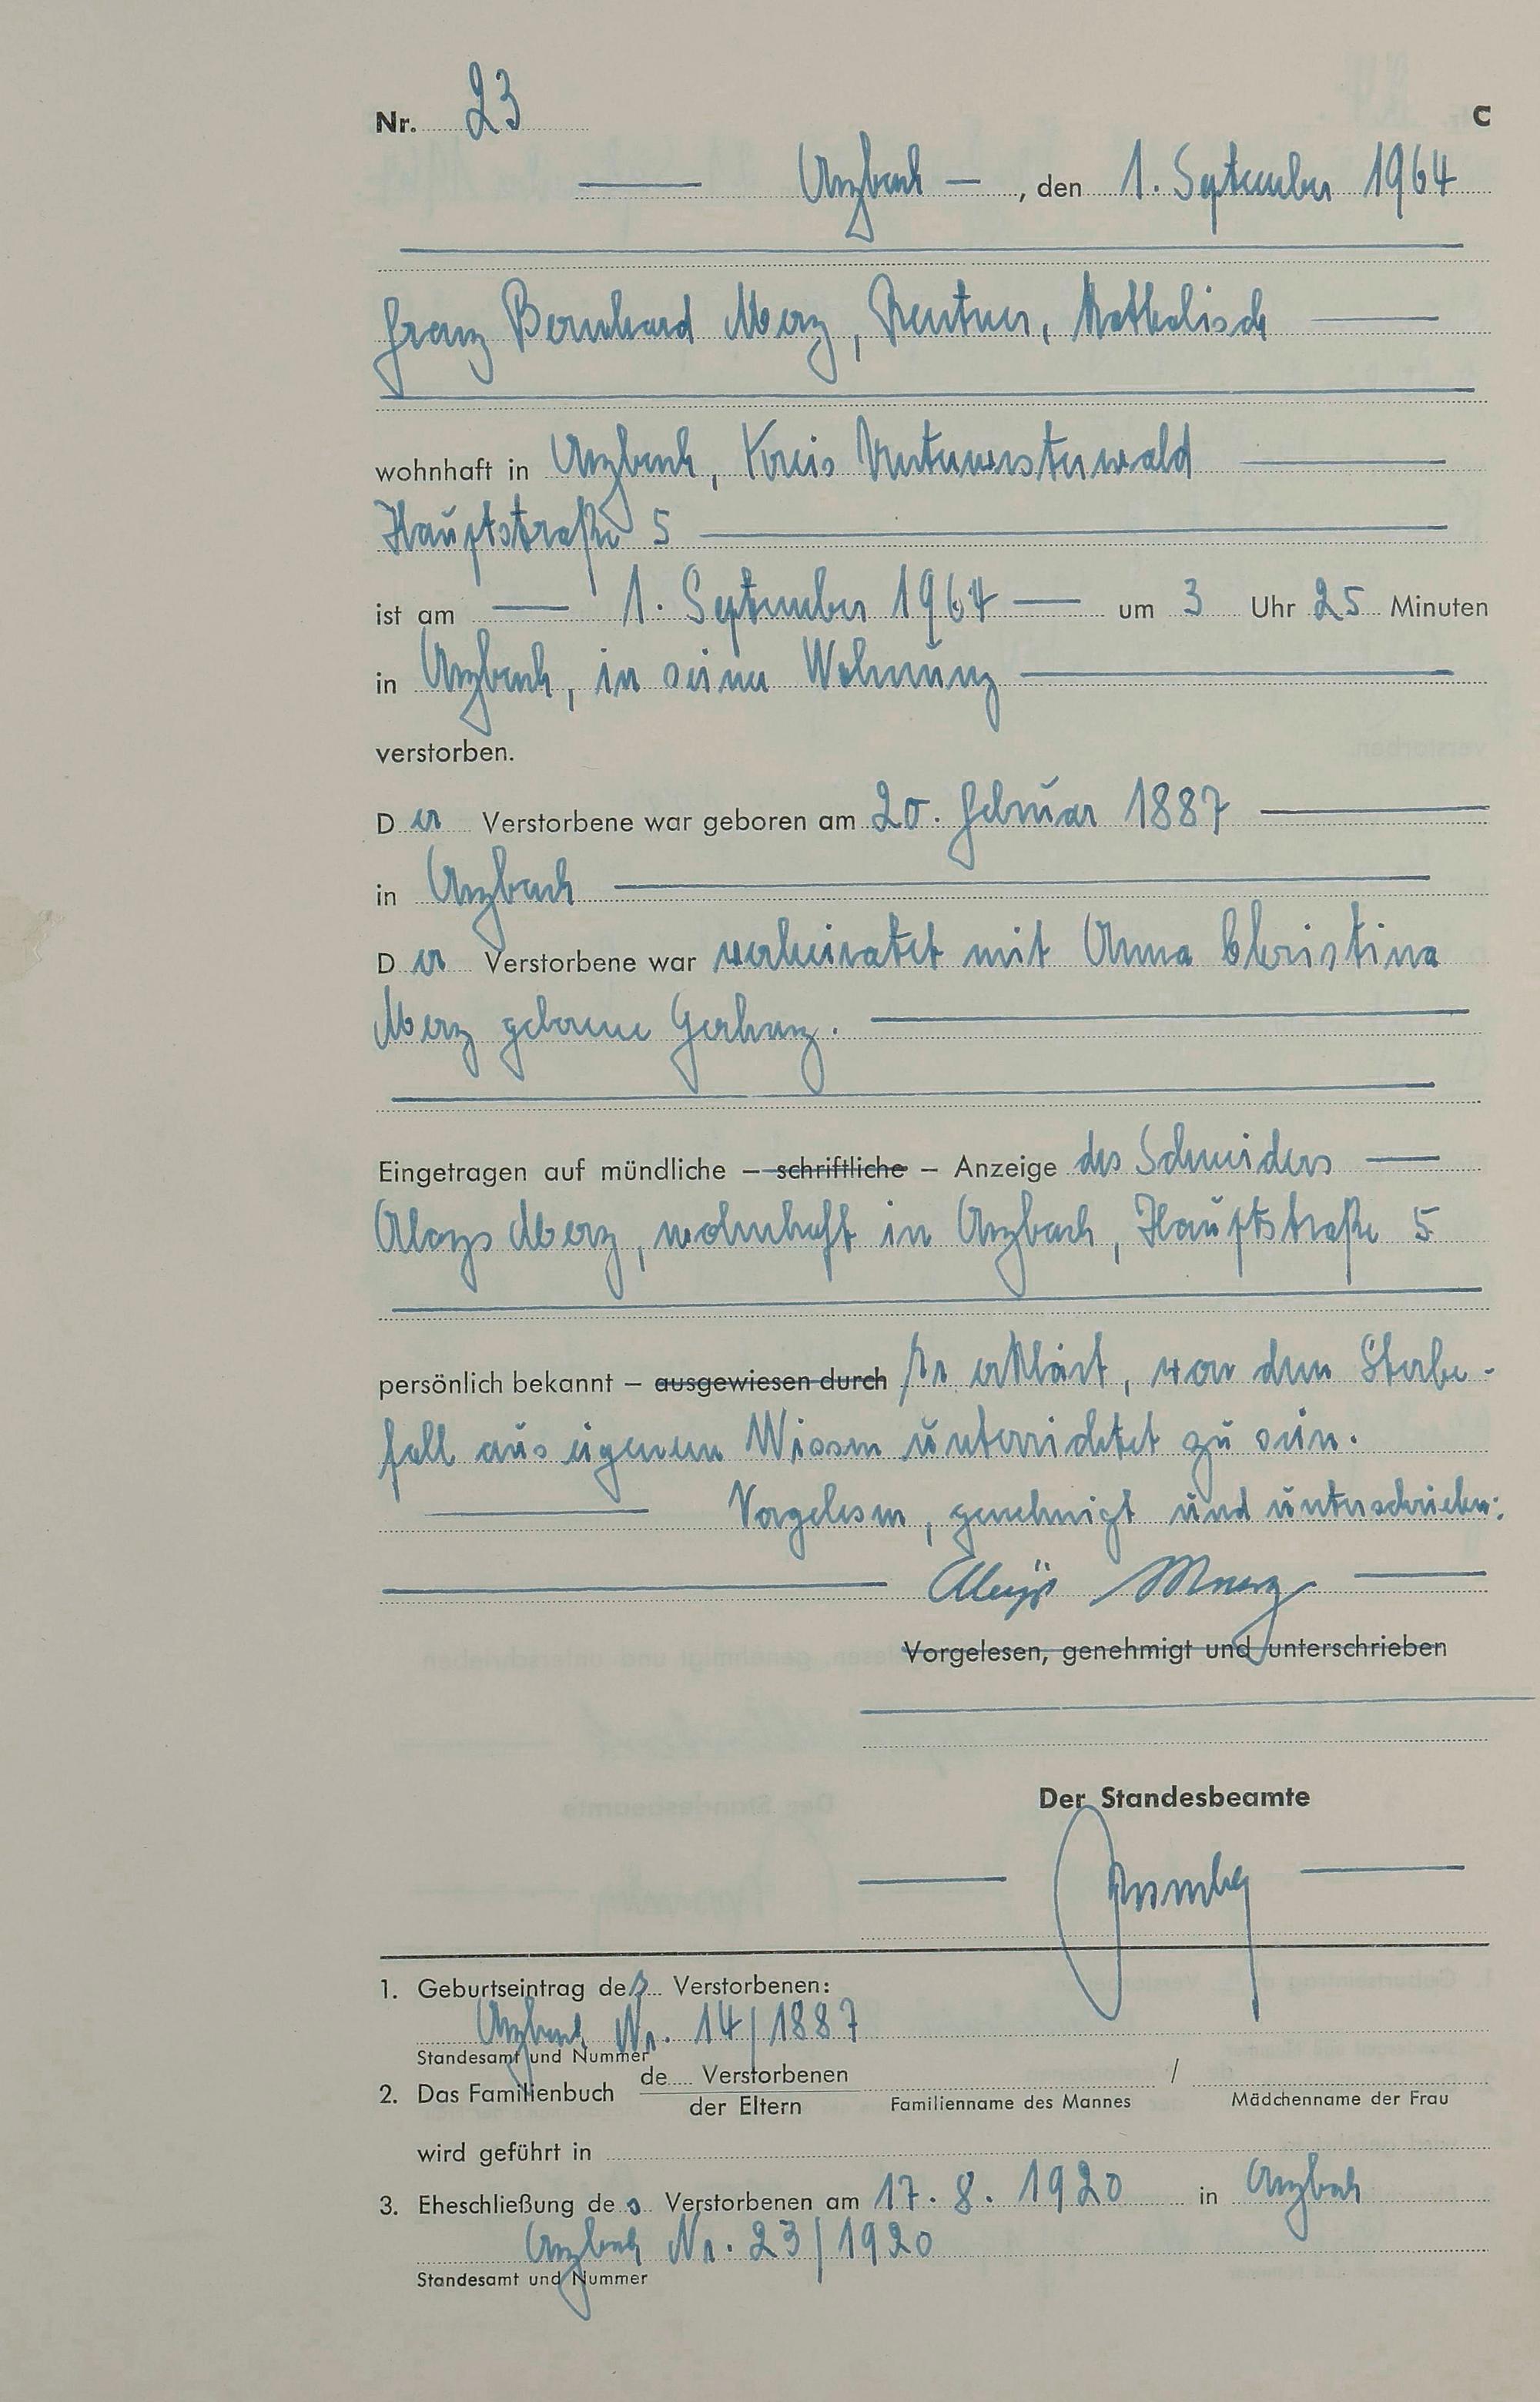 Nr. 23 C
Arzbach —, den 1. September 1964
Franz Bernhard Merz, Rentner, Katholisch
wohnhaft in Arzbach, Kreis Unterwesterwald
Hauptstraße 5
ist am 1. September 1964 um 3 Uhr 25 Minuten
in Arzbach, in seiner Wohnung
verstorben.
Der Verstorbene war geboren am 20. Februar 1887
in Arzbach
Der Verstorbene war verheiratet mit Anna Christina
Merz geborene Gerharz.
Eingetragen auf mündliche – schriftliche – Anzeige des Schneiders
Aloys Merz, wohnhaft in Arzbach, Hauptstraße 5
persönlich bekannt – ausgewiesen durch Er erklärt, von dem Sterbe-
fall aus eigenem Wissen unterrichtet zu sein.
Vorgelesen, genehmigt und unterschrieben:
Aloys Merz
Vorgelesen, genehmigt und unterschrieben
Der Standesbeamte
1. Geburtseintrag des Verstorbenen:
Arzbach Nr. 14/1887
Standesamt und Nummer
2. Das Familienbuch de Verstorbenen /
der Eltern Familienname des Mannes Mädchenname der Frau
wird geführt in
3. Eheschließung des Verstorbenen am 17. 8. 1920 in Arzbach
Arzbach Nr. 23/1920
Standesamt und Nummer